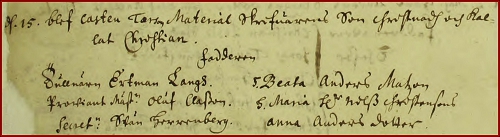 d. 15. blef Casten Tarm Material skrifvarens Son Christnadh och Kal-
lat Christian.
fadderen
Tullnärn Ertman Langs. S. Beata Anders Matzon
Proviant Mäst: Oluf Clason. S. Maria Hr Nilß Christensons
Secret: Svän Herrenberg. Anna Anders dotter